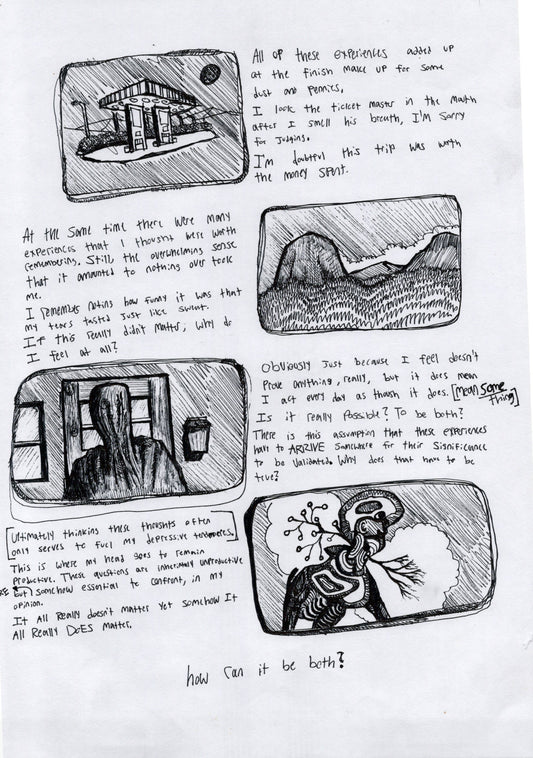 All of these experiences added up
at the finish make up for some
dust and pennies,
I look the ticket master in the mouth
after I smell his breath, I'm sorry
for judging.
I'm doubtful this trip was worth
the money spent.
At the same time there were many
experiences that I thought were worth
remembering. Still the overwhelming sense
that it amounted to nothing over took
me.
I remember noting how funny it was that
my tears tasted just like sweat.
If this really didn't matter, why do
I feel at all?
Obviously just because I feel doesn't
prove anything, really, but it does mean
I act every day as though it does. [mean some
thing]
Is it really possible? To be both?
There is this assumption that these experiences
have to ARRIVE somewhere for their significance
to be validated. Why does that have to be
true?
[Ultimately thinking these thoughts often
only serves to fuel my depressive tendencies.]
This is where my head goes to remain
productive. These questions are inherently unproductive
but somehow essential to confront, in my
opinion.
It all Really doesn't matter yet somehow It
All Really DOES matter.
how can it be both?